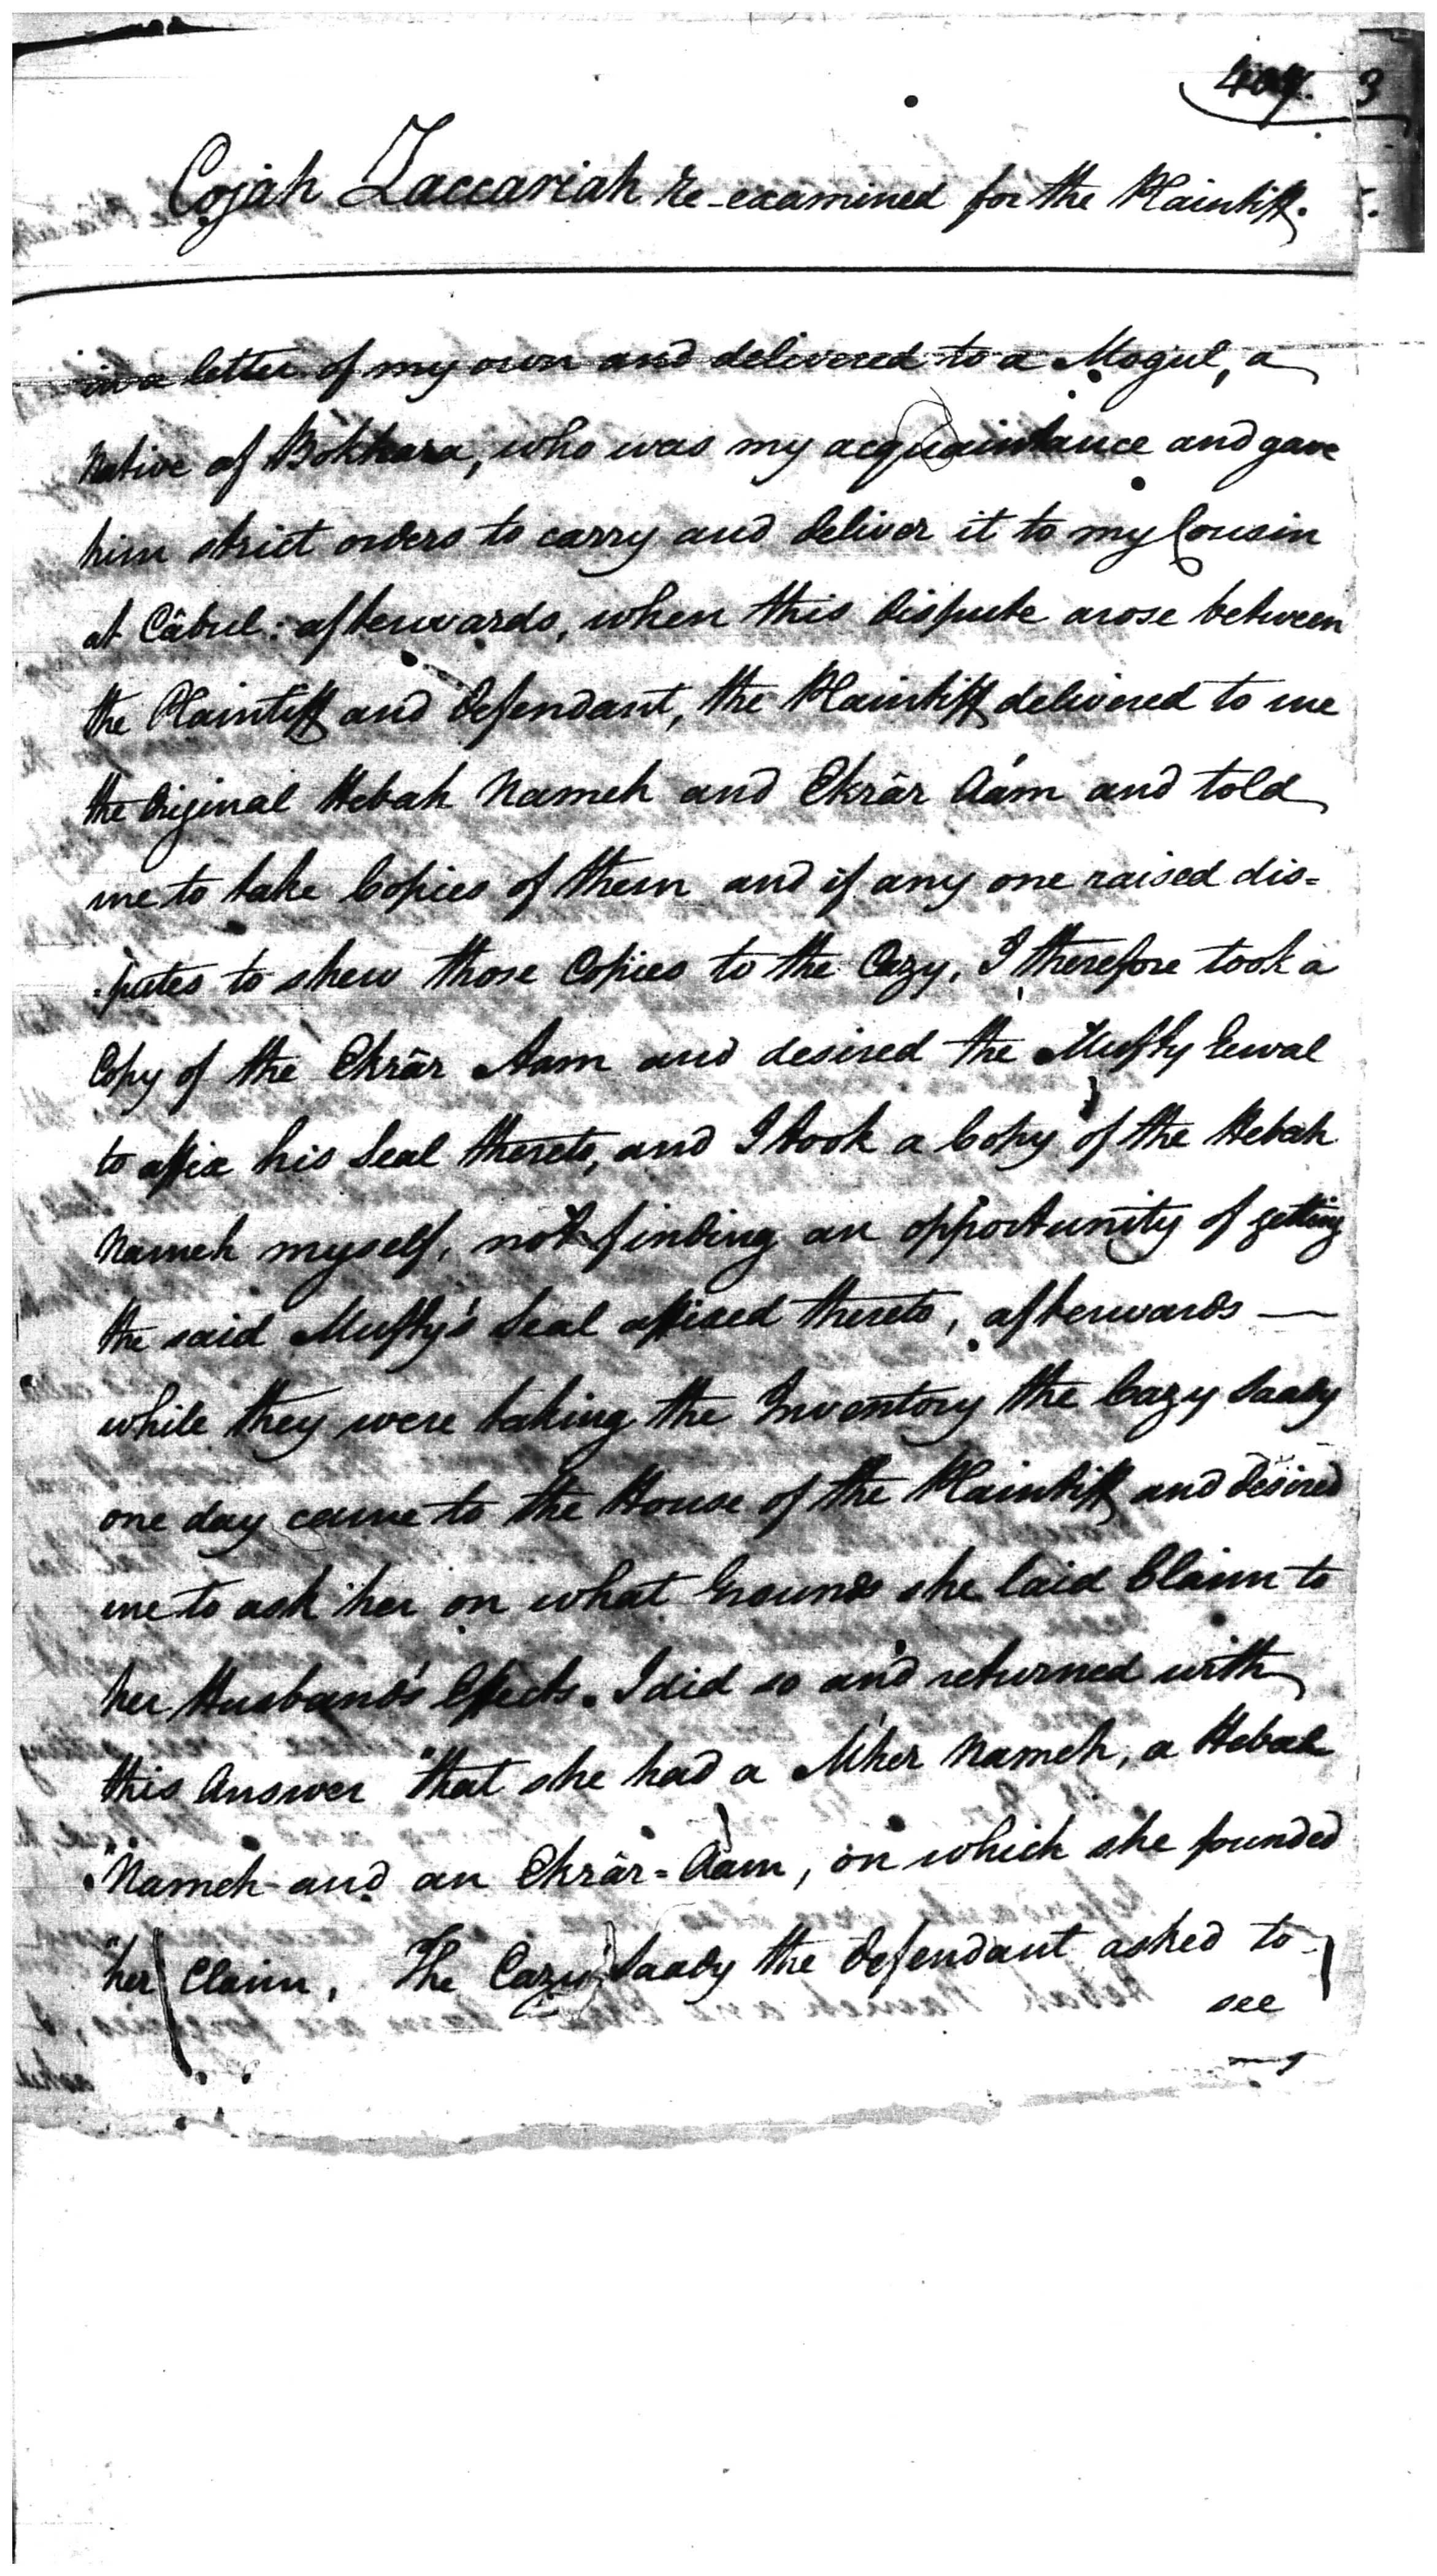 Cojah Zaccariah re-examined for the Plaintiff.
in a letter of my own and delivered to a Mogul, a
native of Bokhara, who was my acquaintance and gave
him strict orders to carry and deliver it to my Cousin
at Câbul: afterwards, when this dispute arose between
the Plaintiff and Defendant, the Plaintiff delivered to me
the Original Hebah Nameh and Ekrâr Aám and told
me to take Copies of them and if any one raised dis=
=putes to shew those Copies to the Cazy, I therefore took a
Copy of the Ekrâr Aam and desired the Mufty
to affix his Seal thereto, and I took a Copy of the Hebah
Nameh myself, not finding an opportunity of getting
the said Mufty's Seal affixed thereto, afterwards —
while they were taking the Inventory the Cazy Saady
one day came to the House of the Plaintiff and desired
me to ask her on what Grounds she laid Claim to
her Husband's Effects. I did so and returned with
this Answer "that she had a M'her Nameh, a Hebah
"Nameh and an Ekrâr=Aam, on which she founded
"her Claim, The Cazy Saady the defendant asked to
see